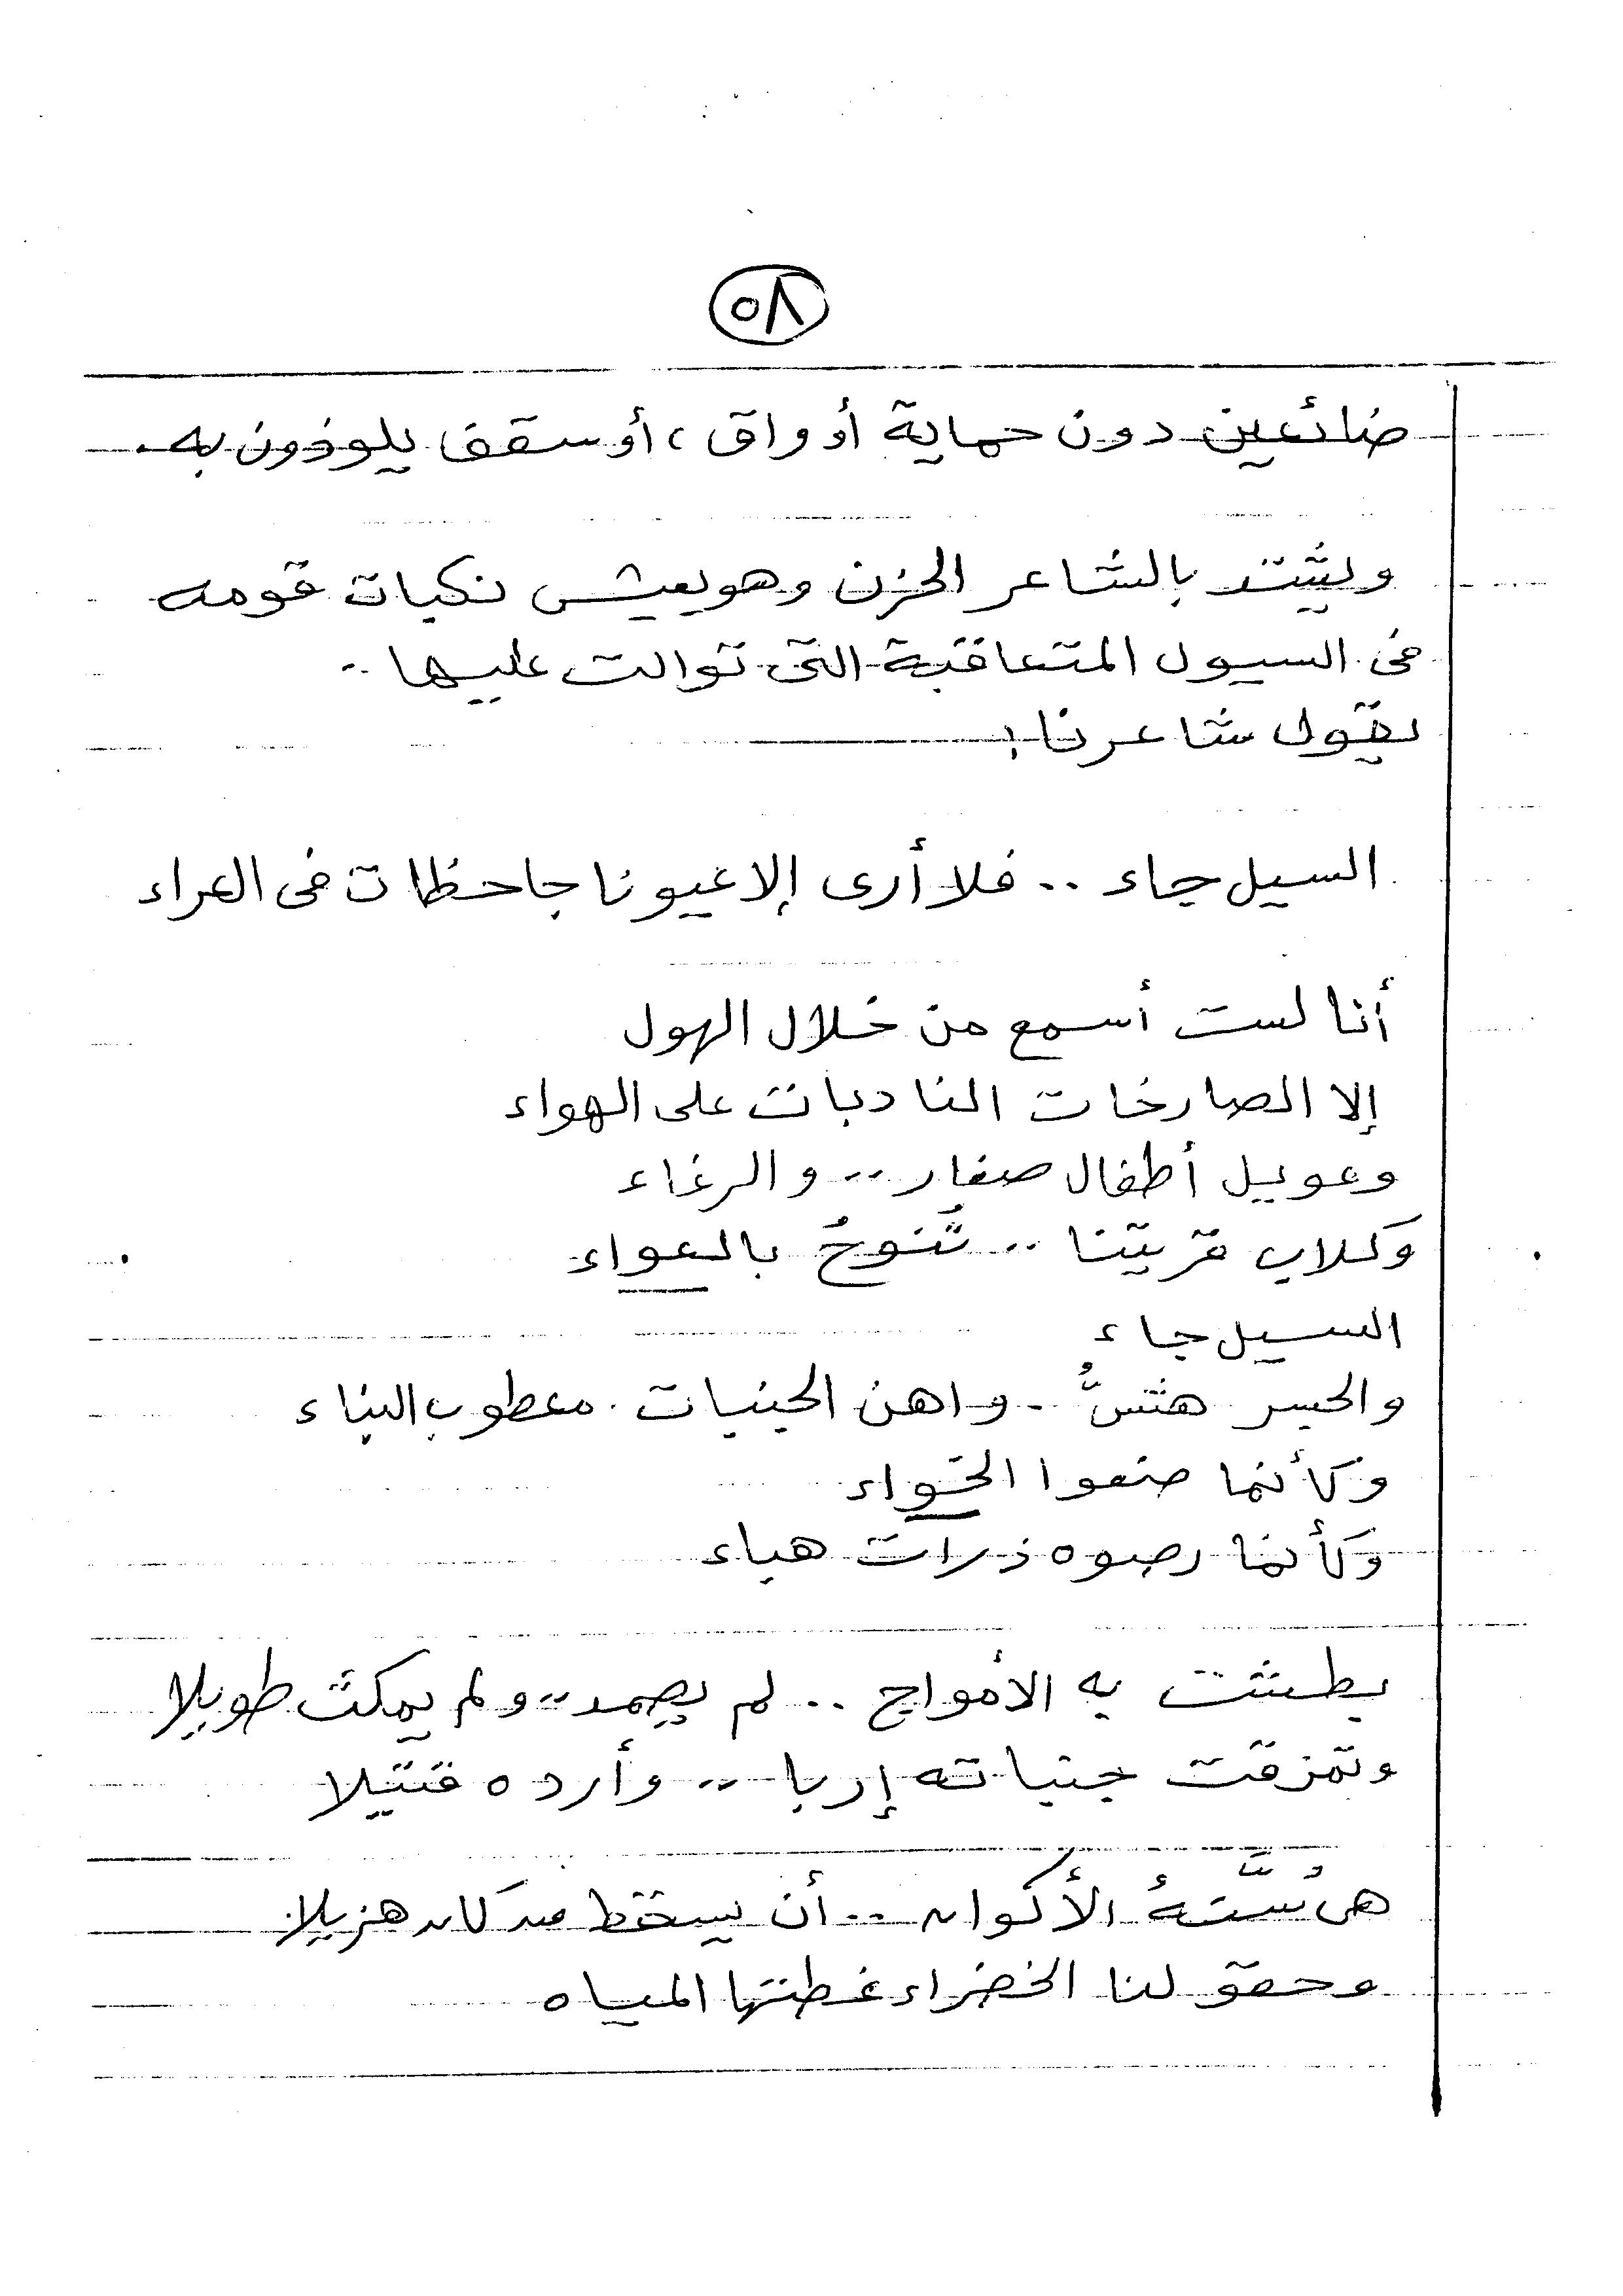 ٥٨
ضائعين دون حماية أو واق، أو سقف يلوذون به.
ويشتد بالشاعر الحزن وهو يعيش نكبات قومه
فى السيول المتعاقبة التى توالت عليها..
يقول شاعرنا:
السيل جاء .. فلا أرى إلا عيونا جاحظات فى العراء
أنا لست أسمع من خلال الهول
إلا الصارخات النادبات على الهواء
وعويل أطفال صغار .. والرغاء
وكلاب قريتنا .. تَنُوحُ بالعواء
السيل جاء
والجسر هشٌّ .. واهن الجنبات . معطوب البناء
وكأنما صنعوا الخواء
وكأنما رصوه ذرات هباء
بطشت به الأمواج .. لم يصمد .. ولم يمكث طويلا
وتمزقت جنباته إربا .. وأرده قتيلا
هى سُنَّةُ الأكوان .. أن يسقط من كان هزيلا
وحقولنا الخضراء غطتها المياه